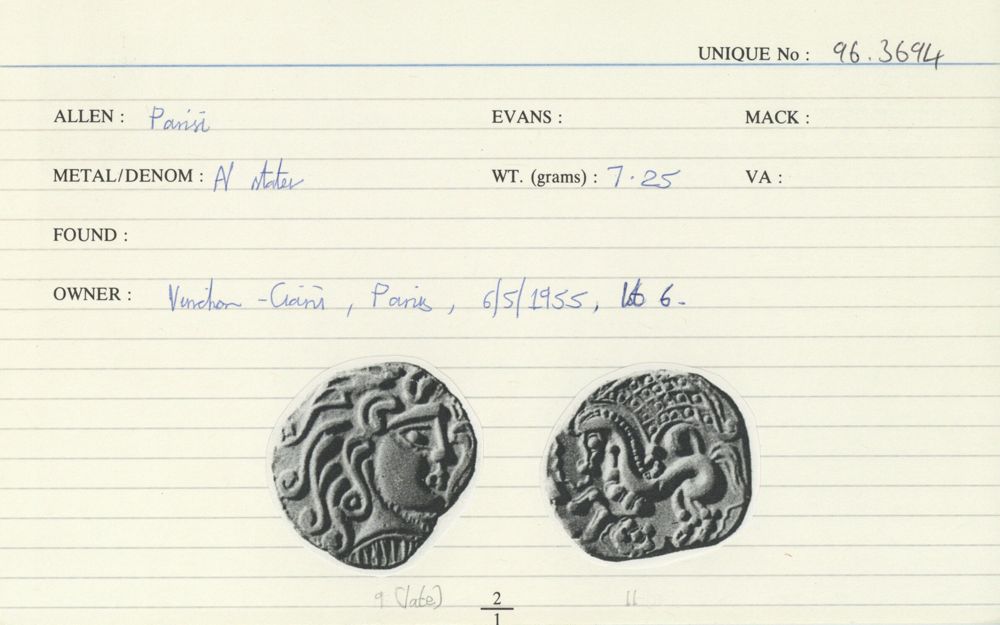 UNIQUE No : 96.3694
ALLEN : Parisi EVANS : MACK :
METAL/DENOM : N stater WT. (grams) : 7.25 VA :
FOUND :
OWNER : Vinchon - Ciani, Paris, 6/5/1955, lot 6.
9 (late) 2/1 11